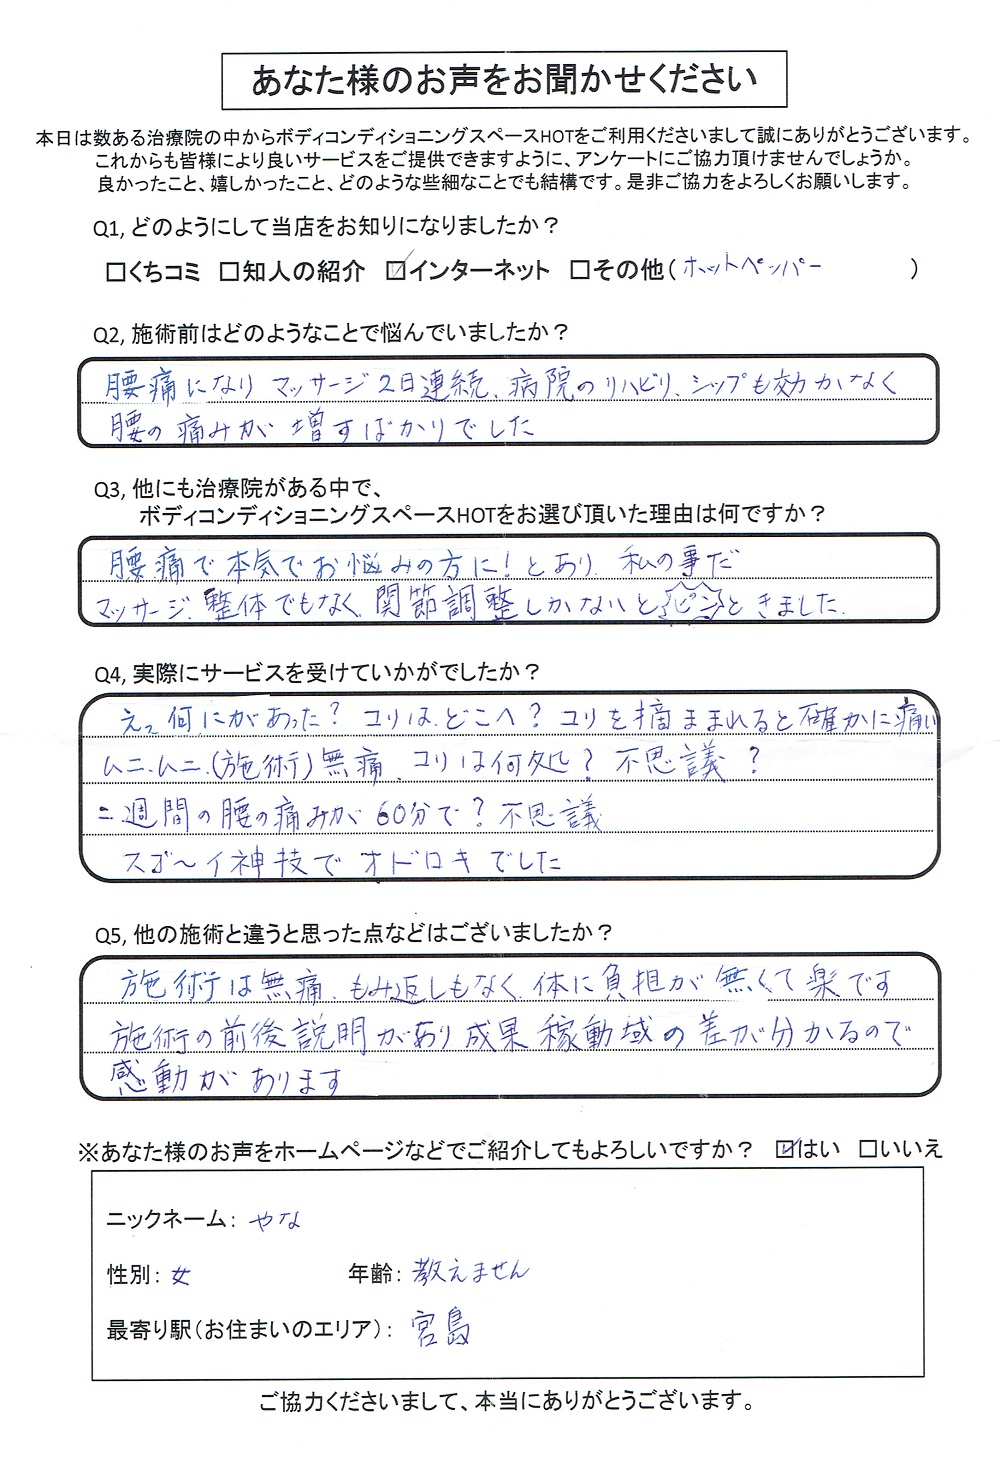 あなた様のお声をお聞かせください
本日は数ある治療院の中からボディコンディショニングスペースHOTをご利用くださいまして誠にありがとうございます。
これからも皆様により良いサービスをご提供できますように、アンケートにご協力頂けませんでしょうか。
良かったこと、嬉しかったこと、どのような些細なことでも結構です。是非ご協力をよろしくお願いします。
Q1, どのようにして当店をお知りになりましたか？
□くちコミ □知人の紹介 ☑インターネット □その他（ホットペッパー ）
Q2, 施術前はどのようなことで悩んでいましたか？
腰痛になり マッサージ2日連続、病院のリハビリ、シップも効かなく
腰の痛みが増すばかりでした
Q3, 他にも治療院がある中で、
ボディコンディショニングスペースHOTをお選び頂いた理由は何ですか？
腰痛で本気でお悩みの方に！とあり、私の事だ
マッサージ、整体でもなく、関節調整しかないとピンときました。
Q4, 実際にサービスを受けていかがでしたか？
えっ何にがあった？コリは、どこへ？コリを摘ままれると確かに痛い
ムニ、ムニ、(施術)無痛、コリは何処？不思議？
二週間の腰の痛みが60分で？不思議
スゴ〜イ神技でオドロキでした
Q5, 他の施術と違うと思った点などはございましたか？
施術は無痛、もみ返しもなく、体に負担が無くて楽です
施術の前後説明があり成果稼動域の差が分かるので
感動があります
※あなた様のお声をホームページなどでご紹介してもよろしいですか？ ☑はい □いいえ
ニックネーム： やな
性別： 女 年齢： 教えません
最寄り駅（お住まいのエリア）： 宮島
ご協力くださいまして、本当にありがとうございます。